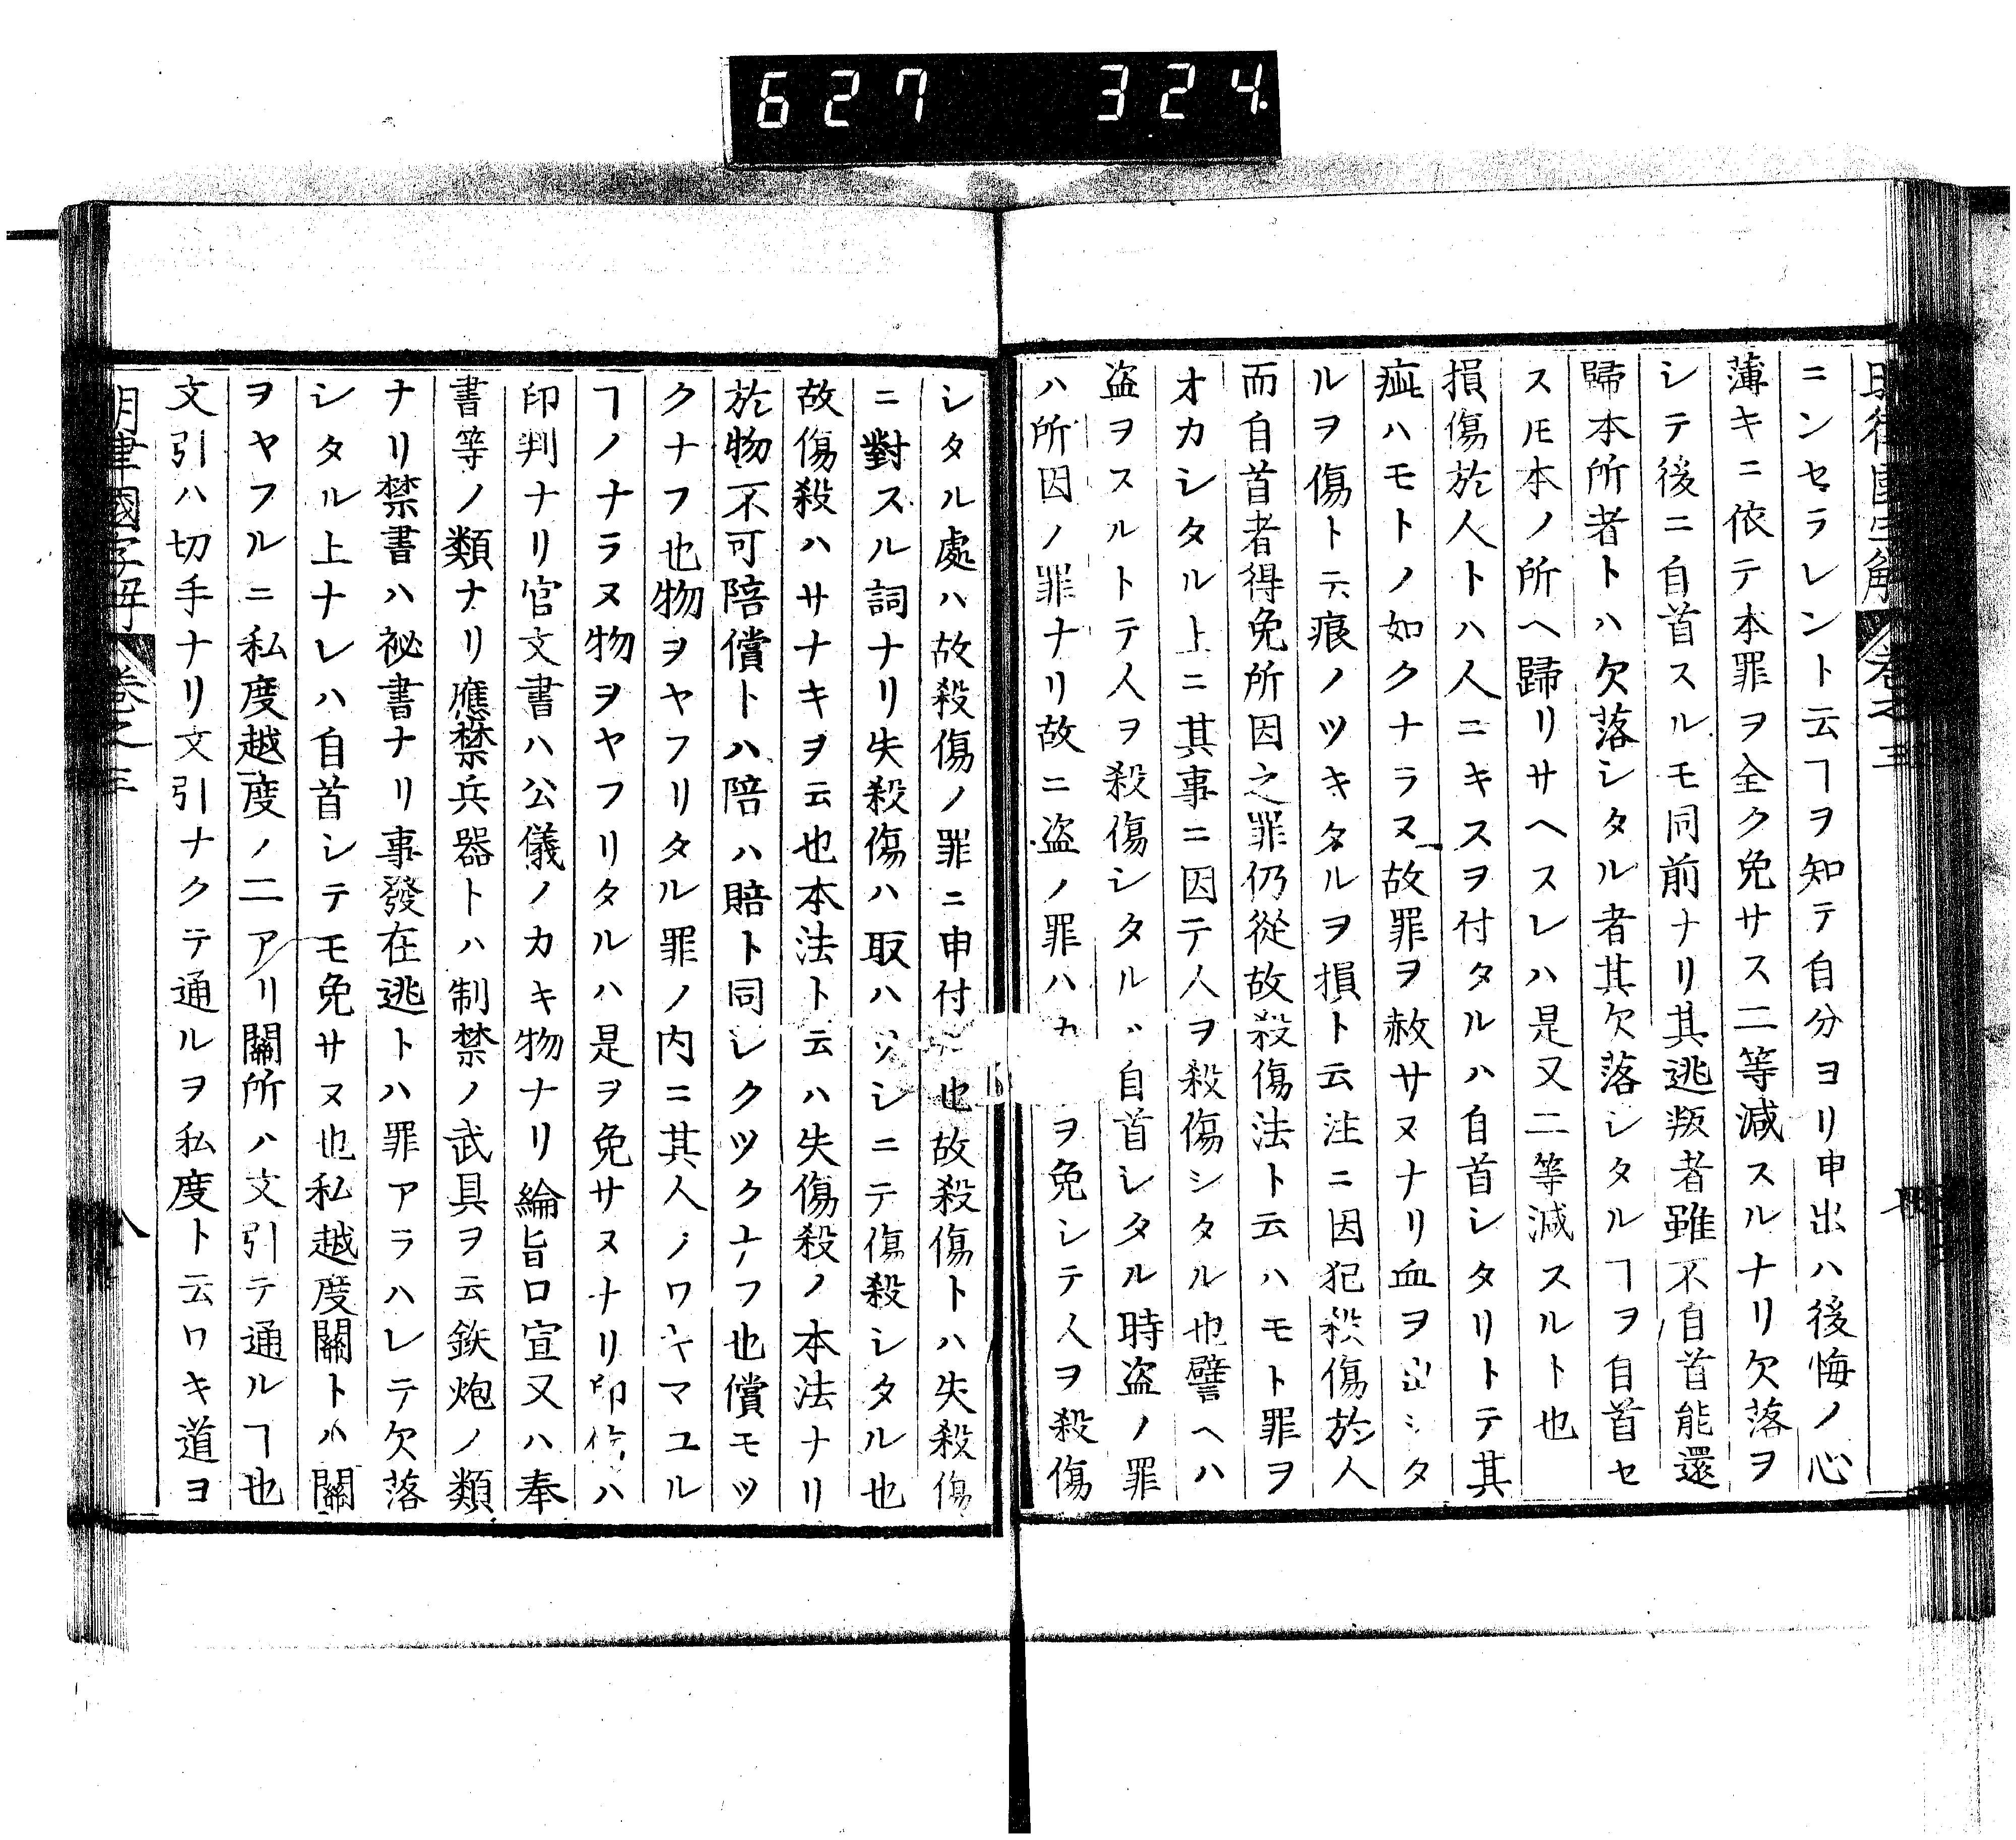 627 324
明律國字解 卷之三
ニンセラレント云ヿヲ知テ自分ヨリ申出ハ後悔ノ心
薄キニ依テ本罪ヲ全ク免サス二等減スルナリ欠落ヲ
シテ後ニ自首スルモ同前ナリ其逃叛者雖不自首能還
歸本所者トハ欠落シタル者其欠落シタルヿヲ自首セ
スㇳモ本ノ所ヘ歸リサヘスレハ是又二等減スルト也
損傷於人トハ人ニキスヲ付タルハ自首シタリトテ其
疵ハモトノ如クナラヌ故罪ヲ赦サヌナリ血ヲ出シタ
ルヲ傷ト云痕ノツキタルヲ損ト云注ニ因犯殺傷於人
而自首者得免所因之罪仍從故殺傷法ト云ハモト罪ヲ
オカシタル上ニ其事ニ因テ人ヲ殺傷シタル也譬ヘハ
盗ヲスルトテ人ヲ殺傷シタル 自首シタル時盗ノ罪
ハ所因ノ罪ナリ故ニ盗ノ罪ハカ ヲ免シテ人ヲ殺傷
シタル處ハ故殺傷ノ罪ニ申付 也故殺傷トハ失殺傷
ニ對スル詞ナリ失殺傷ハ取ハツシニテ傷殺シタル也
故傷殺ハサナキヲ云也本法ト云ハ失傷殺ノ本法ナリ
於物不可陪償トハ陪ハ賠ト同シクツクナフ也償モツ
クナフ也物ヲヤフリタル罪ノ内ニ其人ノワキマユル
ヿノナラヌ物ヲヤフリタルハ是ヲ免サヌナリ印信ハ
印判ナリ官文書ハ公儀ノカキ物ナリ綸旨口宣又ハ奉
書等ノ類ナリ應禁兵器トハ制禁ノ武具ヲ云鉄炮ノ類
ナリ禁書ハ祕書ナリ事發在逃トハ罪アラハレテ欠落
シタル上ナレハ自首シテモ免サヌ也私越度關トハ關
ヲヤフルニ私度越度ノ二アリ關所ハ文引テ通ルヿ也
文引ハ切手ナリ文引ナクテ通ルヲ私度ト云ワキ道ヨ
明律國字解 卷之三 八